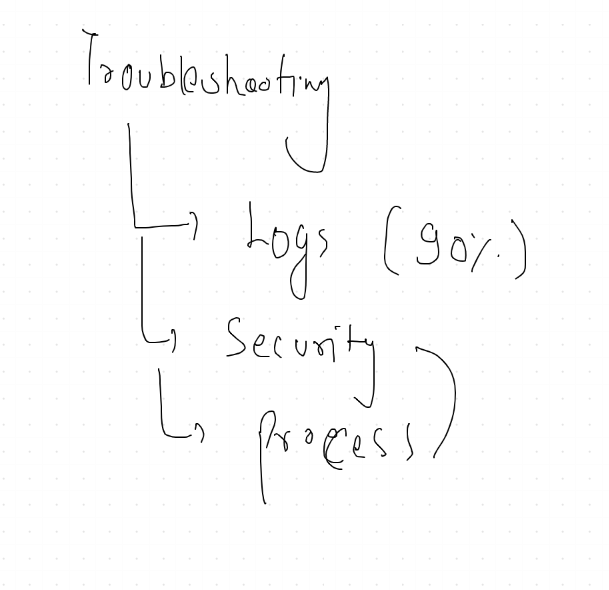 Troubleshooting
Logs (90%.)
Security
process